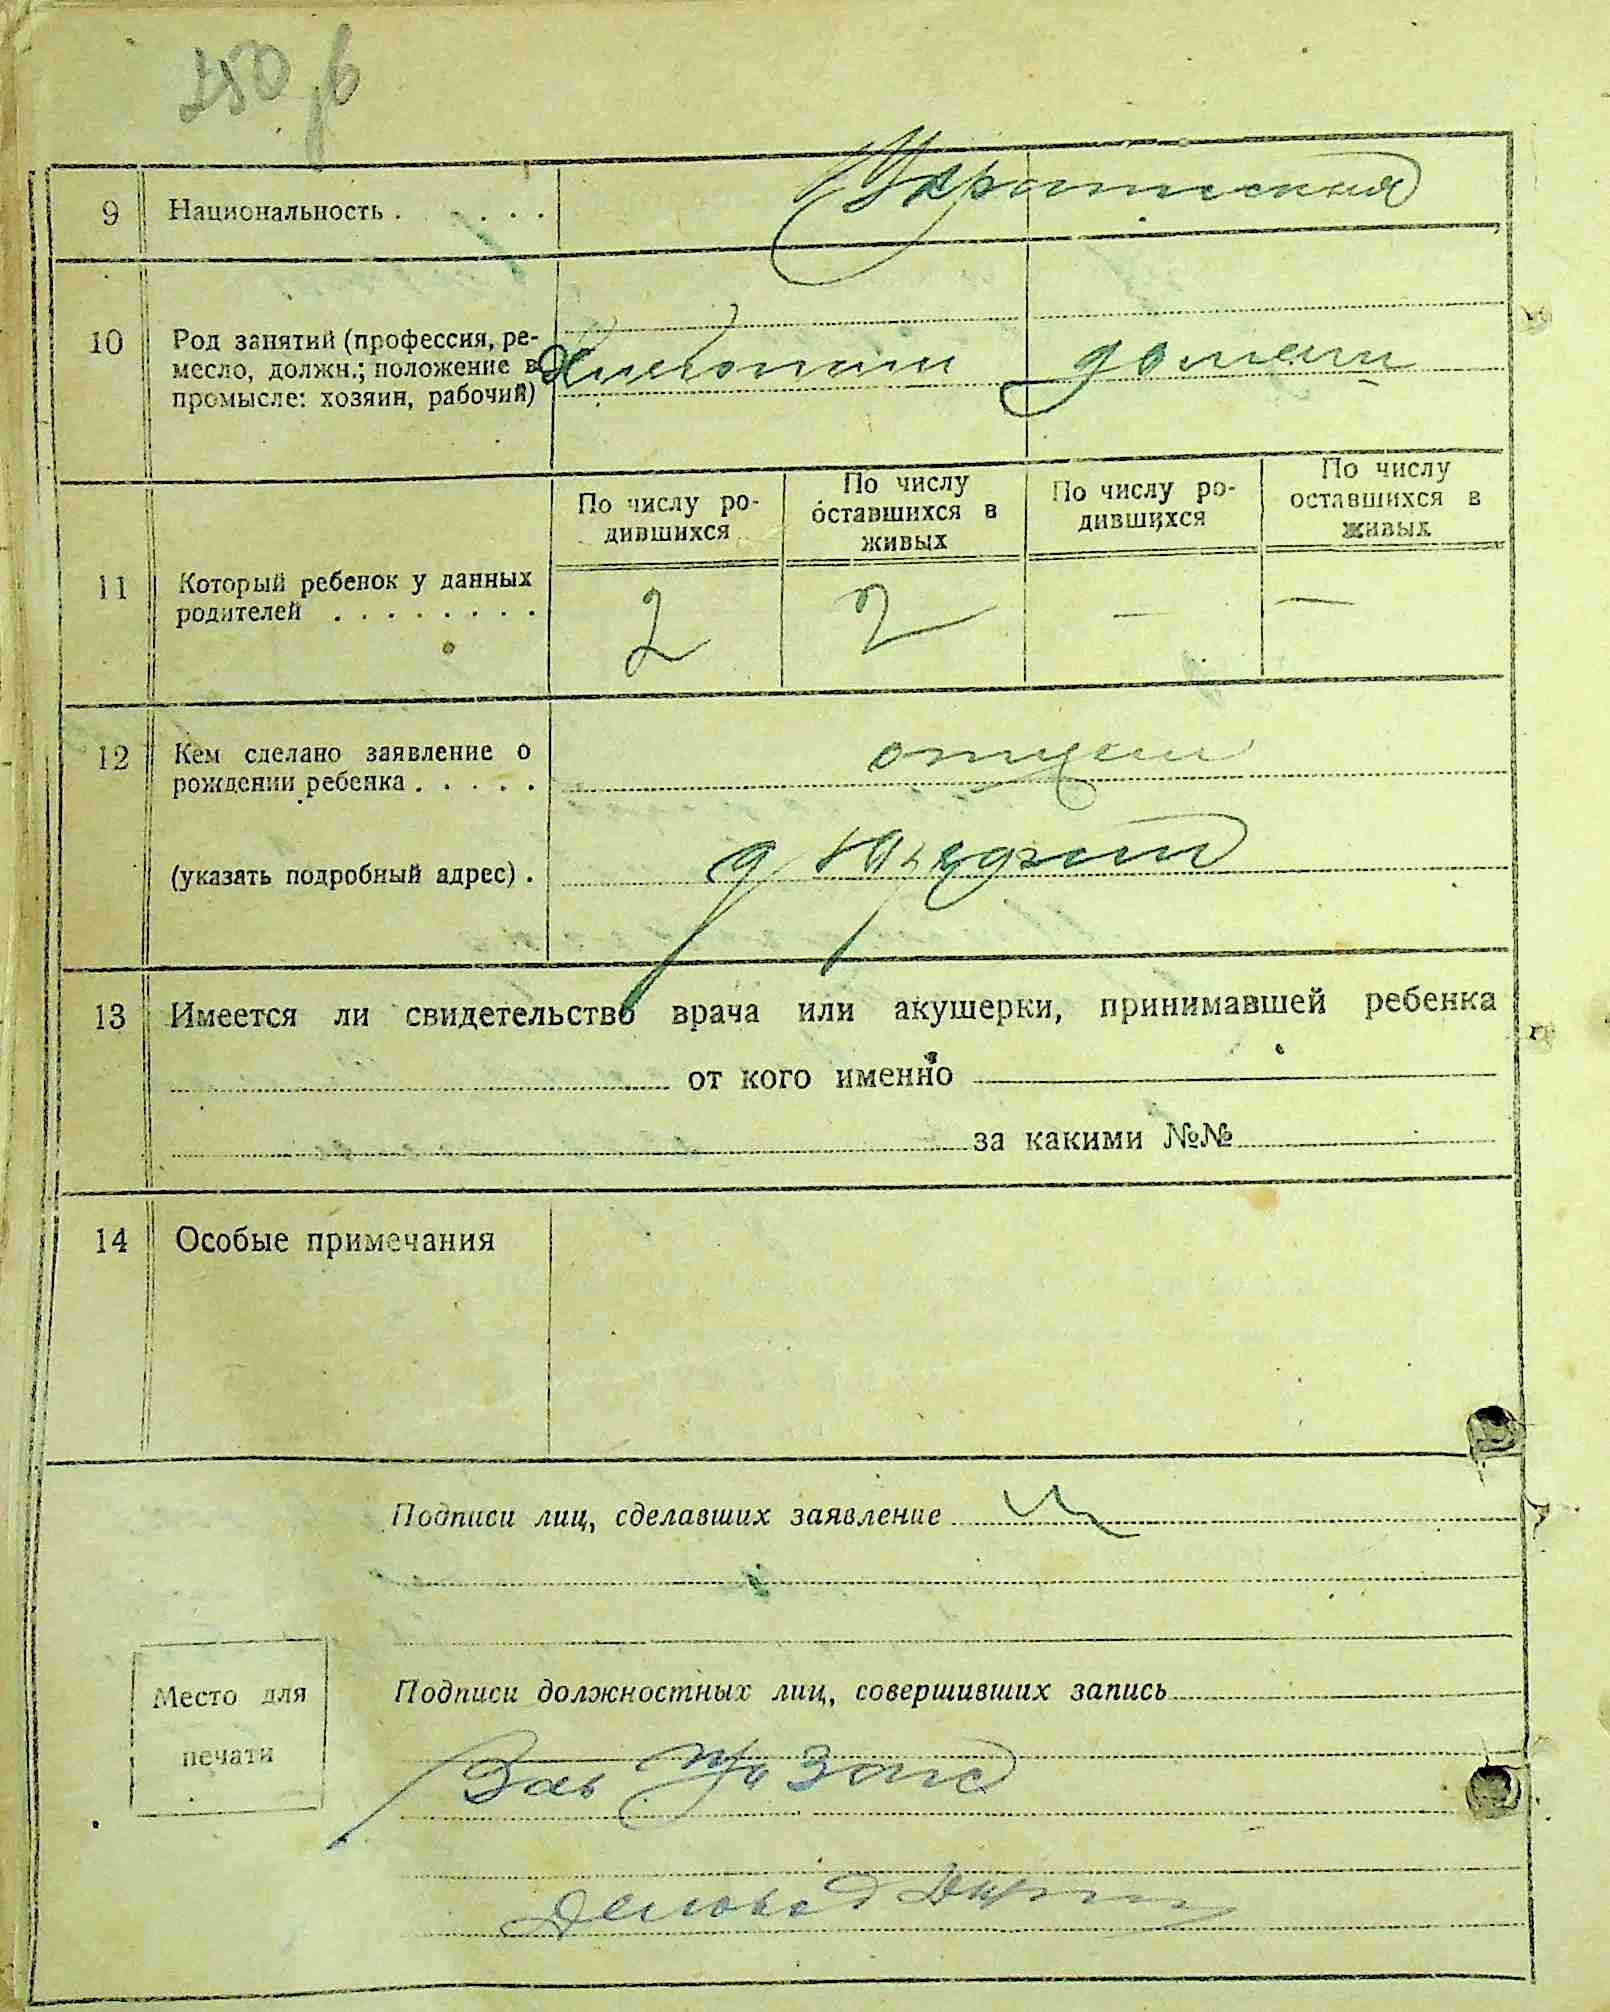 9 Национальность . . . . . .
10 Род занятий (профессия, ре-
месло, должн.; положение в
промысле: хозяин, рабочий)
домаш
По числу ро-
дившихся
По числу
оставшихся в
живых
По числу ро-
дившихся
По числу
оставшихся в
живых
11 Который ребенок у данных
родителей . . . . . . . .
2 2 — —
12 Кем сделано заявление о
рождении ребенка . . . . .
отцем
(указать подробный адрес) .
13 Имеется ли свидетельство врача или акушерки, принимавшей ребенка
от кого именно
за какими №№
14 Особые примечания
Подписи лиц, сделавших заявление
Место для
печати
Подписи должностных лиц, совершивших запись
Зав Загс
Деловод